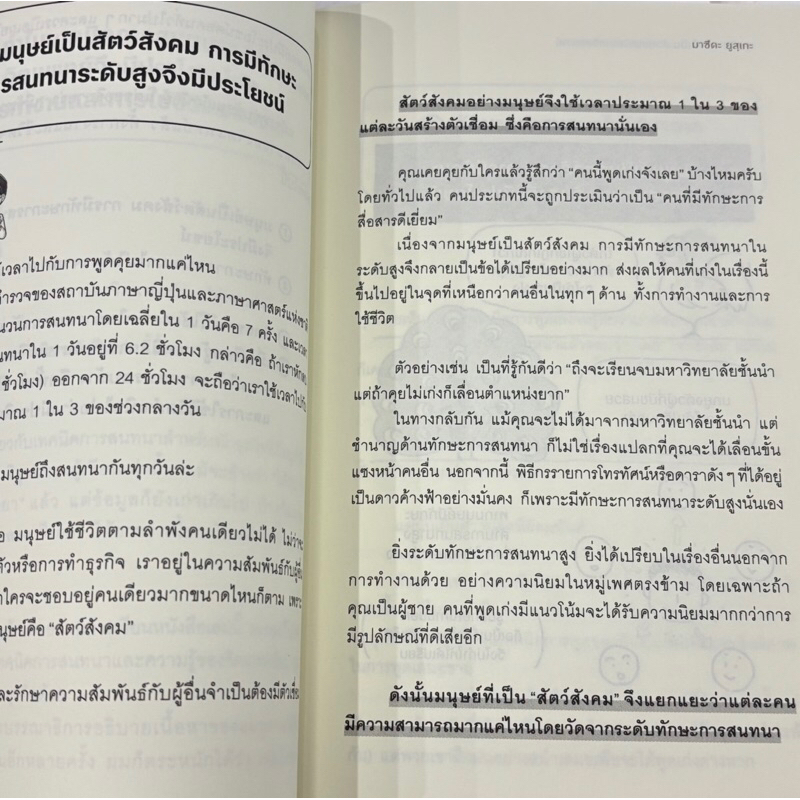 มนุษย์เป็นสัตว์สังคม การมีทักษะ
รสนทนาระดับสูงจึงมีประโยชน์
เวลาไปกับการพูดคุยมากแค่ไหน
สำรวจของสถาบันภาษาญี่ปุ่นและภาษาศาสตร์แห่งชาติ
นวนการสนทนาโดยเฉลี่ยใน 1 วันคือ 7 ครั้ง และเวลา
นทนาใน 1 วันอยู่ที่ 6.2 ชั่วโมง กล่าวคือ ถ้าเราหัก
ชั่วโมง) ออกจาก 24 ชั่วโมง จะถือว่าเราใช้เวลาไปกับ
มาณ 1 ใน 3 ของช่วงกลางวัน
มนุษย์ถึงสนทนากันทุกวันล่ะ
อ มนุษย์ใช้ชีวิตตามลำพังคนเดียวไม่ได้ ไม่ว่าจะ
ตัวหรือการทำธุรกิจ เราอยู่ในความสัมพันธ์กับผู้อื่น
าใครจะชอบอยู่คนเดียวมากขนาดไหนก็ตาม เพราะ
นุษย์คือ “สัตว์สังคม”
ละรักษาความสัมพันธ์กับผู้อื่นจำเป็นต้องมีตัวเชื่อม
มาซึดะ ยูสุเกะ
สัตว์สังคมอย่างมนุษย์จึงใช้เวลาประมาณ 1 ใน 3 ของ
แต่ละวันสร้างตัวเชื่อม ซึ่งคือการสนทนานั่นเอง
คุณเคยคุยกับใครแล้วรู้สึกว่า “คนนี้พูดเก่งจังเลย” บ้างไหมครับ
โดยทั่วไปแล้ว คนประเภทนี้จะถูกประเมินว่าเป็น “คนที่มีทักษะการ
สื่อสารดีเยี่ยม”
เนื่องจากมนุษย์เป็นสัตว์สังคม การมีทักษะการสนทนาใน
ระดับสูงจึงกลายเป็นข้อได้เปรียบอย่างมาก ส่งผลให้คนที่เก่งในเรื่องนี้
ขึ้นไปอยู่ในจุดที่เหนือกว่าคนอื่นในทุกๆ ด้าน ทั้งการทำงานและการ
ใช้ชีวิต
ตัวอย่างเช่น เป็นที่รู้กันดีว่า “ถึงจะเรียนจบมหาวิทยาลัยชั้นนำ
แต่ถ้าคุยไม่เก่งก็เลื่อนตำแหน่งยาก”
ในทางกลับกัน แม้คุณจะไม่ได้มาจากมหาวิทยาลัยชั้นนำ แต่
ชำนาญด้านทักษะการสนทนา ก็ไม่ใช่เรื่องแปลกที่คุณจะได้เลื่อนขั้น
แซงหน้าคนอื่น นอกจากนี้ พิธีกรรายการโทรทัศน์หรือดาราดังๆ ที่ได้อยู่
เป็นดาวค้างฟ้าอย่างมั่นคง ก็เพราะมีทักษะการสนทนาระดับสูงนั่นเอง
ยิ่งระดับทักษะการสนทนาสูง ยิ่งได้เปรียบในเรื่องอื่นนอกจาก
การทำงานด้วย อย่างความนิยมในหมู่เพศตรงข้าม โดยเฉพาะถ้า
คุณเป็นผู้ชาย คนที่พูดเก่งมีแนวโน้มจะได้รับความนิยมมากกว่าการ
มีรูปลักษณ์ที่ดีเสียอีก
ดังนั้นมนุษย์ที่เป็น “สัตว์สังคม” จึงแยกแยะว่าแต่ละคน
มีความสามารถมากแค่ไหนโดยวัดจากระดับทักษะการสนทนา